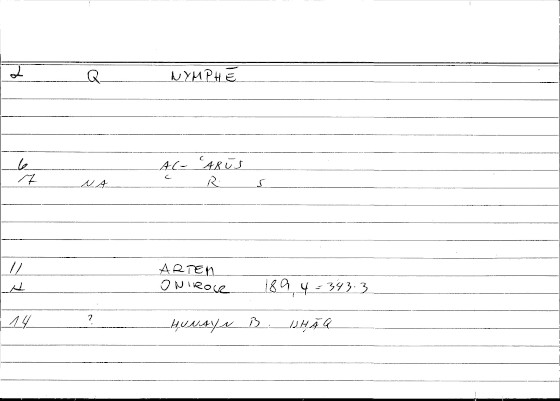 2 Q NYMPHĒ
6 AL- ʿARŪS
7 NA ʿ R S
11 ARTEM
12 ONIROCR 189, 4 = 343.3
14 ? HUNAYN B. ISHĀQ